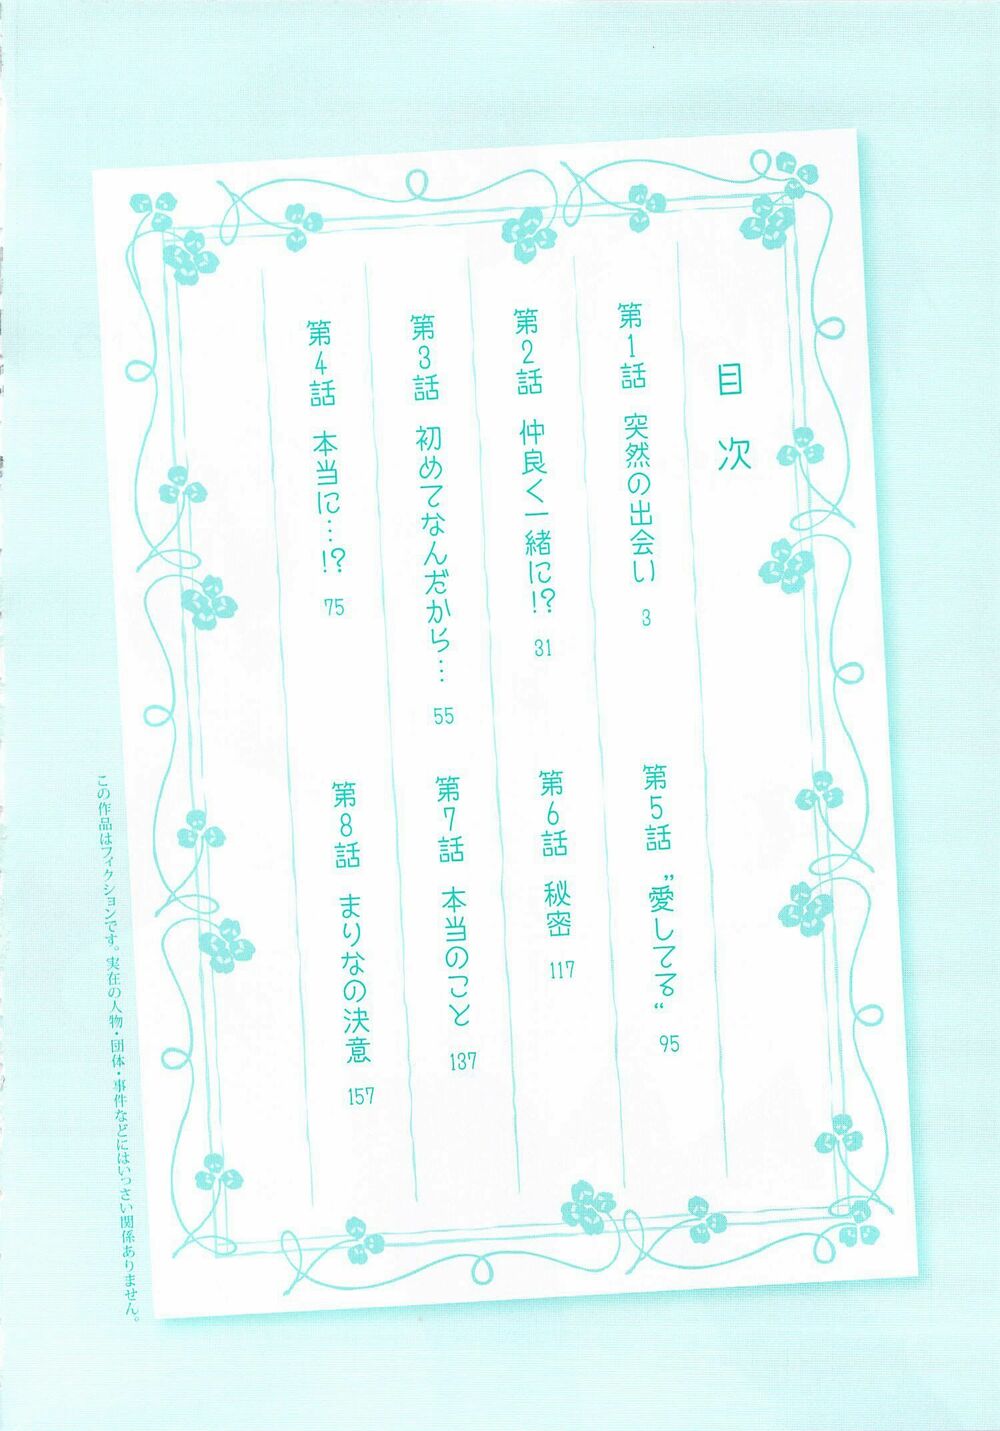 目次
第1話 突然の出会い 3
第2話 仲良く一緒に!? 31
第3話 初めてなんだから… 55
第4話 本当に…!? 75
第5話 “愛してる“ 95
第6話 秘密 117
第7話 本当のこと 137
第8話 まりなの決意 157
この作品はフィクションです。実在の人物・団体・事件などにはいっさい関係ありません。